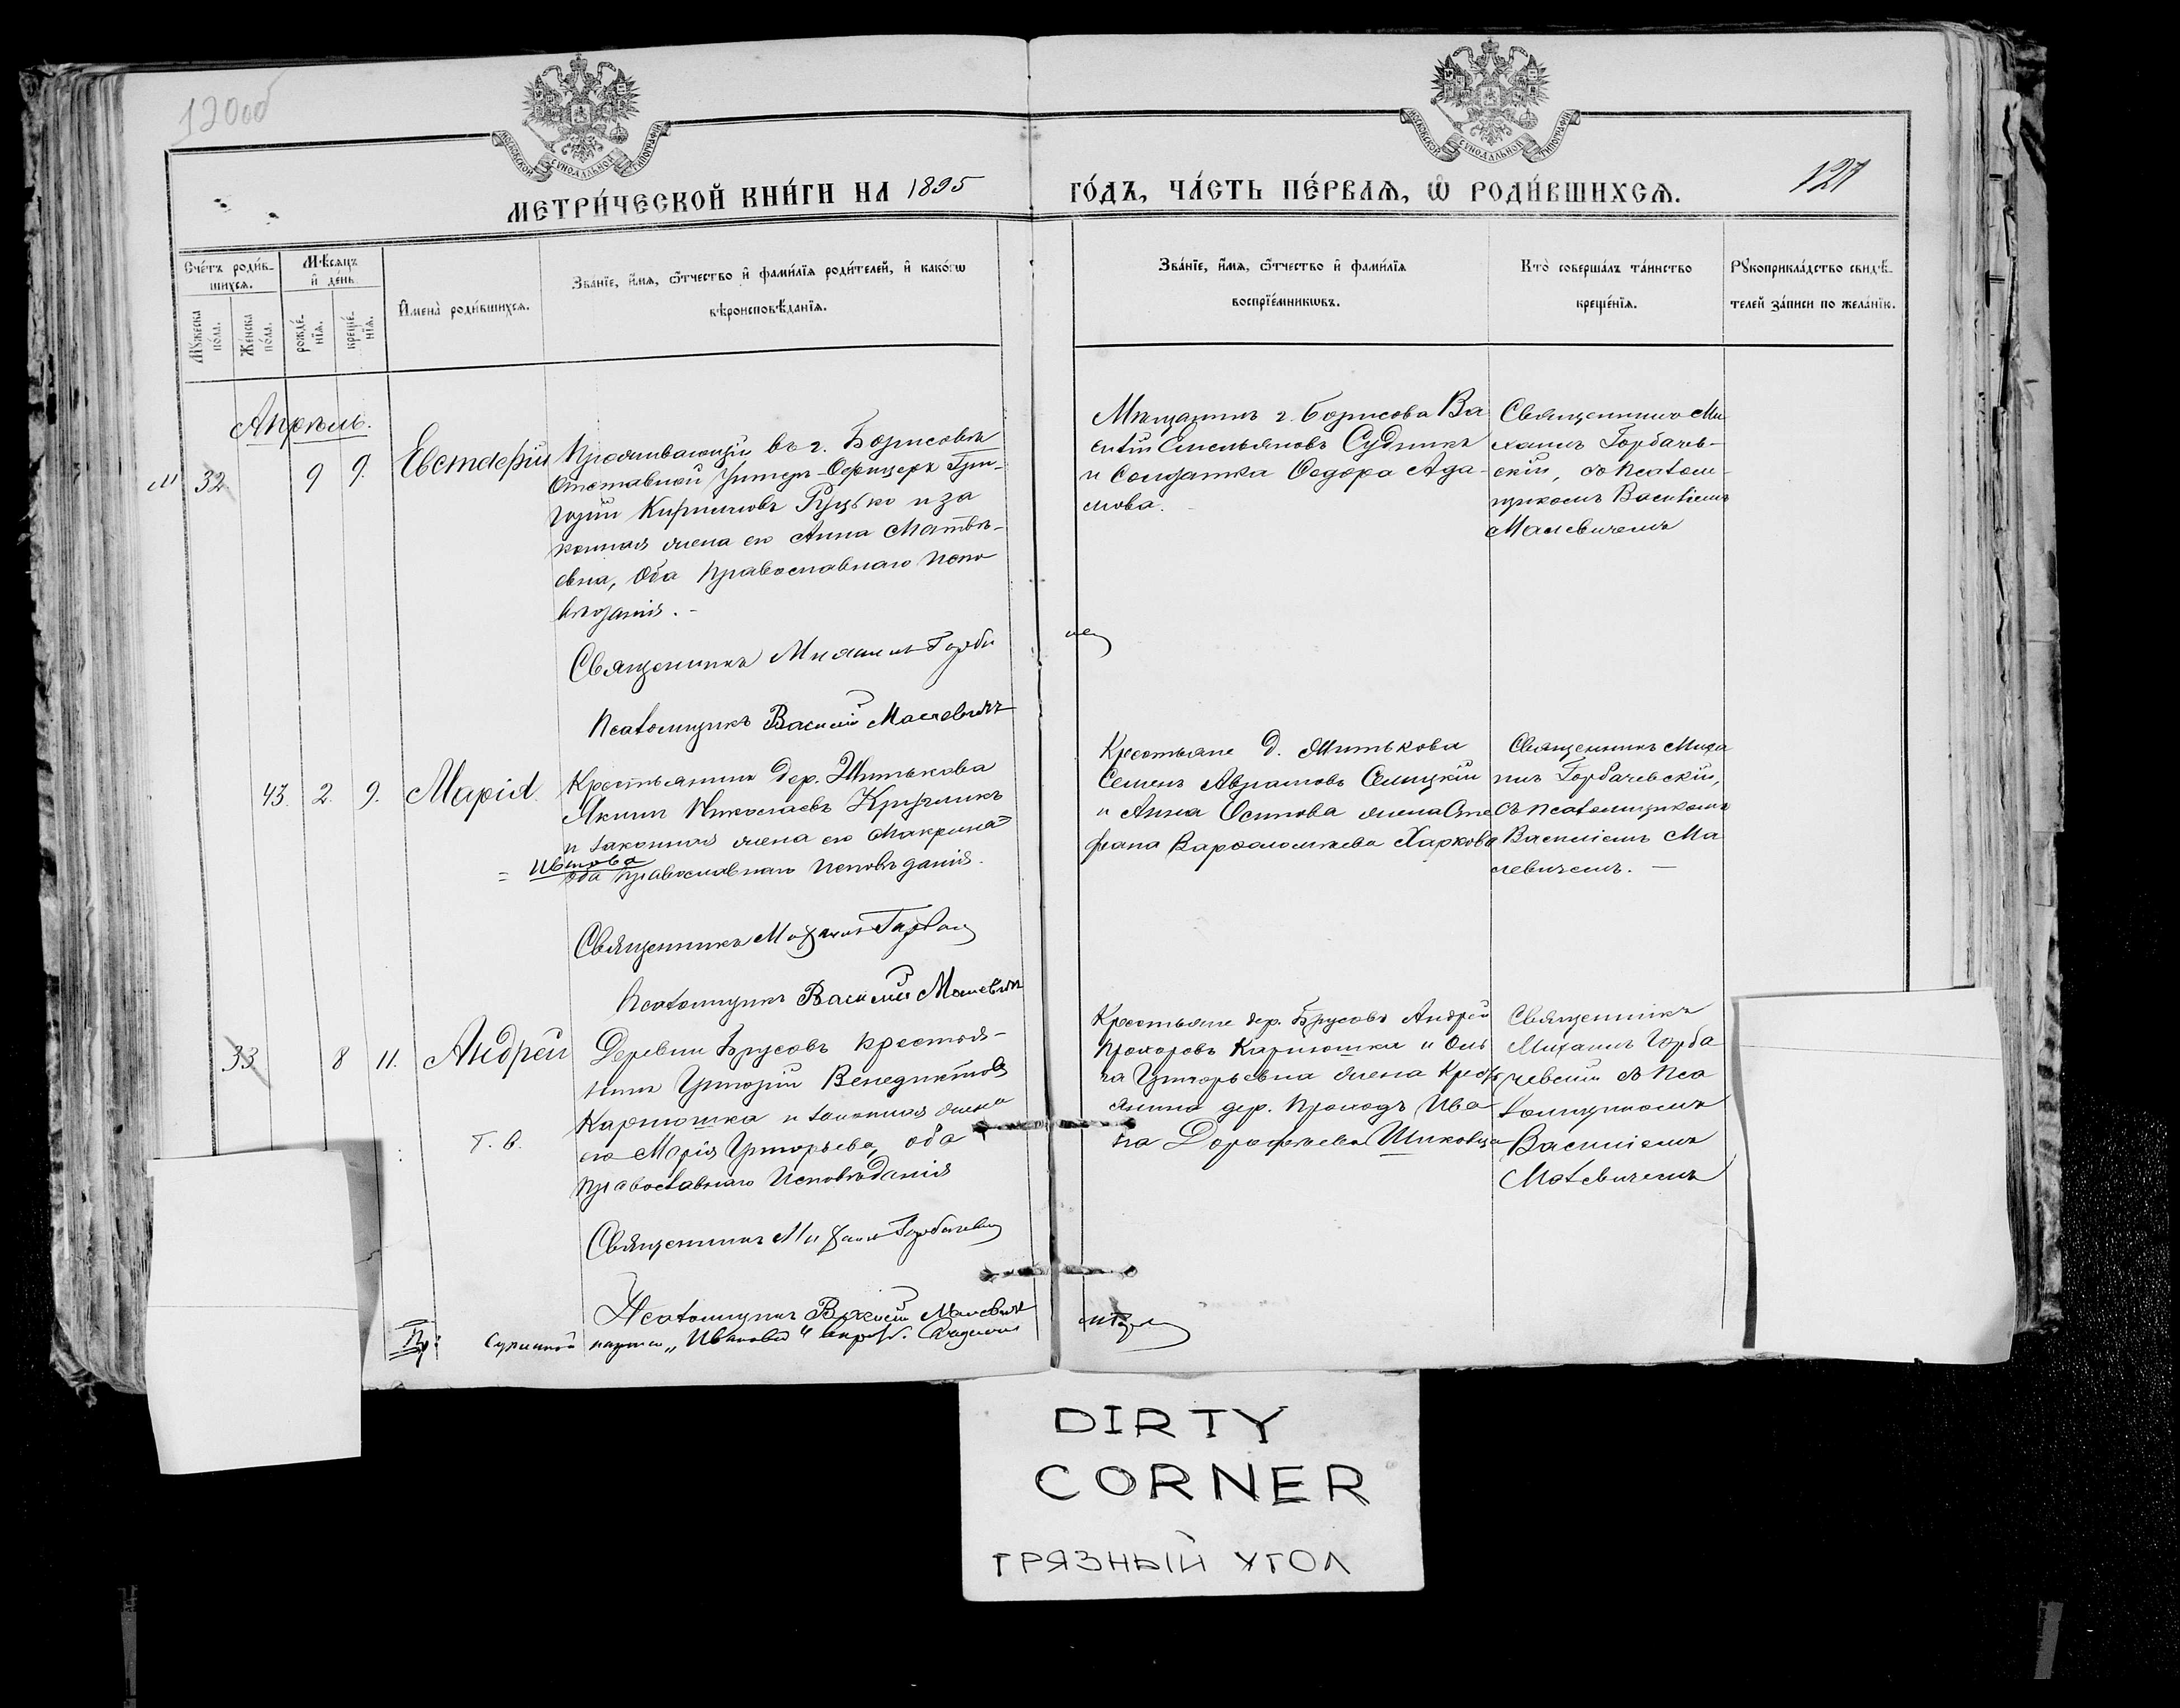 120об
МОСКОВСКОЙ СѴНОДАЛЬНОЙ ТИПОГРАФІИ
МОСКОВСКОЙ СѴНОДАЛЬНОЙ ТИПОГРАФІИ
МЕТРИ́ЧЕСКОЙ КНИ́ГИ НА 1895
ГО́ДЪ, ЧА́СТЬ ПЕ́РВАѦ, Ѡ҆ РОДИ́ВШИХСѦ.
121
Сче́тъ роди́в-
шихсѧ.
Мѣсѧцъ
и҆ де́нь
Мꙋ́жеска по́ла.
Же́нска по́ла.
рожде́-нїѧ.
креще́-нїѧ.
И҆мена̀ роди́вшихсѧ.
Зва́нїе, и҆́мѧ, ѻ҆́тчество и҆ фами́лїѧ роди́телей, и҆ како́гѡ
вѣроисповѣ́данїѧ.
Зва́нїе, и҆́мѧ, ѻ҆́тчество и҆ фами́лїѧ
воспрїе́мникѡвъ.
Кто̀ соверша́лъ та́инство
креще́нїѧ.
Рꙋкоприкла́дство свидѣ́-
телей за́писи по жела́нїю.
Апрѣль.
М 32 9 9. Евстафій
Проживающій въ г. Борисовѣ
Отставной Унтеръ-Офицеръ Гри-
горій Кириловъ Руцько и за
конная жена его Анна Матвѣ-
евна, Оба православнаго испо
вѣданія. -
Священникъ Михаилъ Горба
Псаломщикъ Василій Малевичъ
Мѣщанинъ г. Борисова Ва
силій Емельяновъ Судникъ
и Солдатка Ѳедора Ада-
мова.
Священникъ Ми
хаилъ Горбачев-
скій, съ псалом-
щикомъ Василіемъ
Малевичемъ
43. 2. 9. Марія.
Крестьянинъ дер.
Якимъ Николаевъ
и законная жена его Макрина
= Иванова
оба православнаго исповѣданія.
Священникъ Михаилъ
Псаломщикъ Василій Малевичъ
Крестьяне д.
Семенъ Аврамовъ
и Анна Осипова жена Сте
фана Варѳоломѣева Харкова
Священникъ Миха
илъ Горбачевскій,
съ псаломщикомъ
Василіемъ Ма
левичемъ. —
33 8 11. Андрей
Т. В.
Деревни Брусовъ крестья-
нинъ Григорій Венедиктовъ
Карпюшка и законная жена
его Марія Григорьева, оба
православнаго исповѣданія
Священникъ Михаилъ Горбачевск
Псаломщикъ Василій Малевичъ
Крестьяне дер. Брусовъ Андрей
Прохоровъ Карпюшка и Оль
га Григорьевна жена крест
янина дер. Проходъ Ива
на Дорофѣева
Священникъ
Михаилъ Горба
чевскій съ Пса
ломщикомъ
Василіемъ
Малевичемъ
Пр:
„Иванова“
DIRTY
CORNER
ГРЯЗНЫЙ УГОЛ